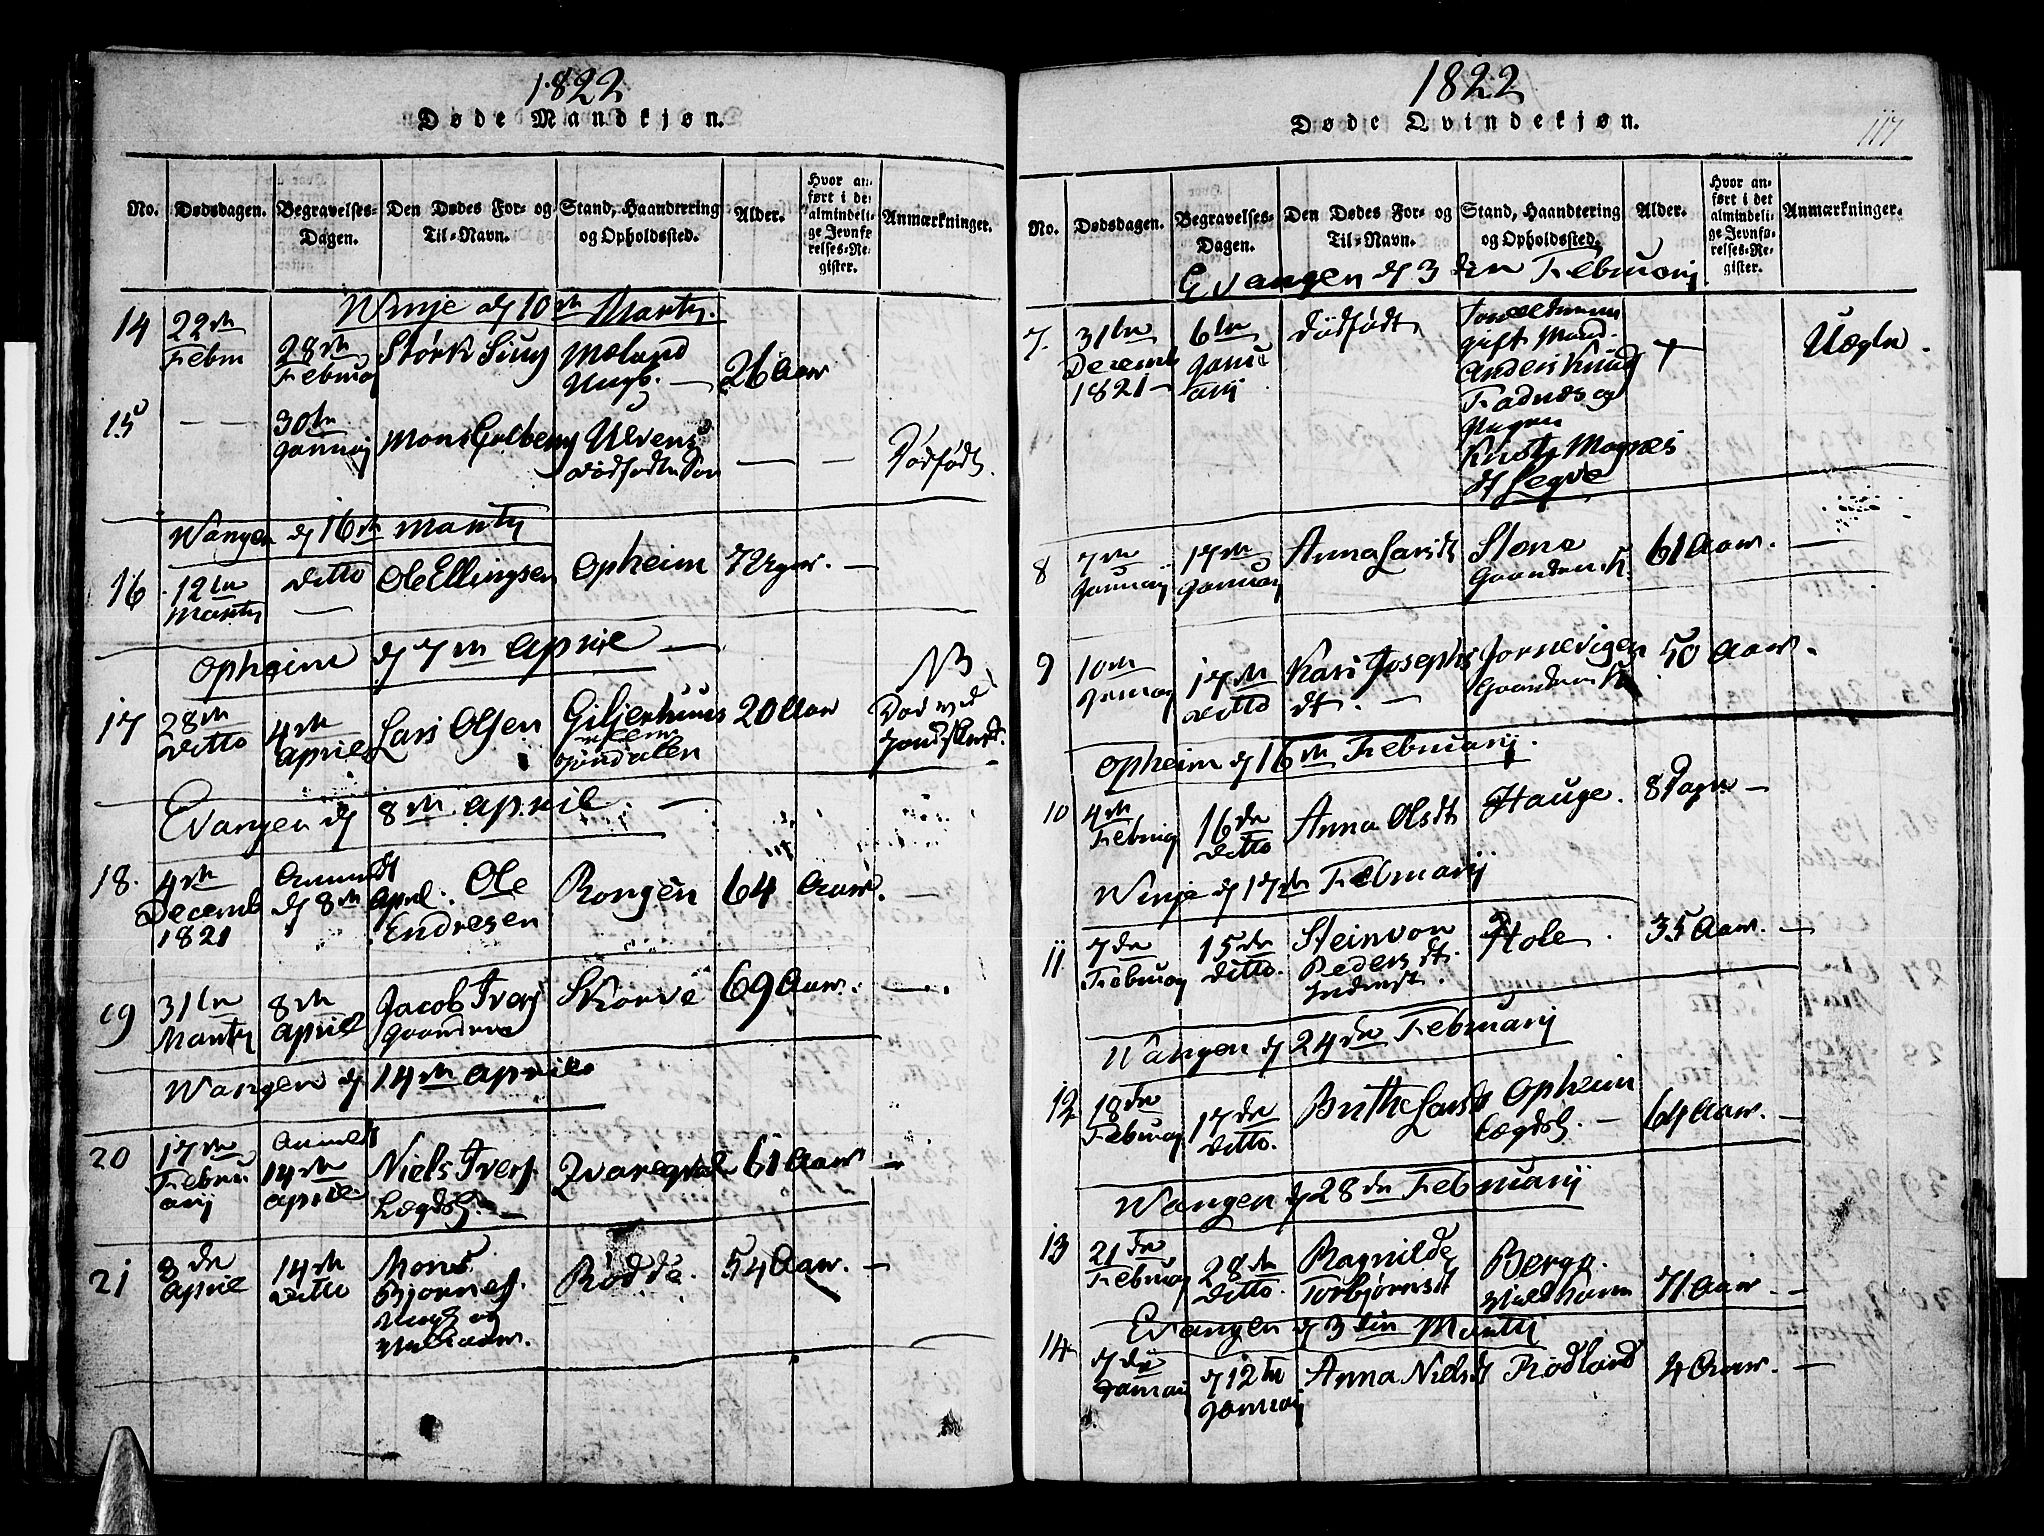 1822
Døde Mandkjøn.
No.
Dødsdagen.
Begravelses-
Dagen.
Den Dødes For- og
Til-Navn.
Stand, Haandtering
og Opholdssted.
Alder.
Hvor an-
ført i de
almindeli-
ge Jevnfø
relses-Re-
gister.
Anmærkninger.
Winje d 10de Martij.
14
22de
Febru
28de
Februaj
Størk
Mæland
Ungk.
26 Aar
15
30te
Januaj
Mons
Ulvens
dødfødte Søn
Dødfødt.
Wangen d 16de Martij
16
12te
Martij
Ditto
Ole Ellingsen
Opheim
7 Uger.
Opheim d 7de April
17
28de
Ditto
4de
April
Lars Olsen
Giljerhuus
20 Aar
NB
Død ved
Evangen d 8de April
18.
4de
Decemb
1821
Anmeldt
d 8de April.
Ole
Endresen
Rongen
64 Aar.
19
31te
Martij
8de
April
Jacob Ivers
Gaardm
Skorve
69 Aar.
Wangen d 14de April
20
17de
Febru
arij
Anmeldt
14de
April
Niels Ivers
Lægdsl.
61 Aar
21
3de
April
14de
Ditto
Mons
Bjørnes.
Ungk og
Rødde.
54 Aar.
1822
Døde Qvindekjøn.
117
No.
Dødsdagen.
Begravelses-
Dagen.
Den Dødes For- og
Til-Navn.
Stand, Haandtering
og Opholdssted.
Alder.
Hvor an-
ført i det
almindeli-
ge Jevnfø-
relses-Re-
gister.
Anmærkninger.
Evangen d 3die Februarij
7.
31te
Decemb
1821
6te
Janu
arij
Dødfødt
gift Mand
Anders Knuds
Fadnæs og
Pigen
Magnes
dt Legve
Uægte.
8
7de
Januaij
17de
Januaij
Anna Larsdt
Støna
Gaardm K.
61 Aar.
9
10de
Januaj
17de
Ditto
Kari Josephs
dt.
Jornevigen
Gaardm K
50 Aar.
Opheim d 16de Februarij.
10
4de
Februaj
16de
Ditto
Anna Olsdt
Hauge.
8 Dage
Winje d 17de Februarij
11
7de
Februaj
15de
Ditto.
Steinvor
Peders dt.
Inderst.
Hole
35 Aar.
Wangen d 24de Februarij
12
18de
Februaj
17de
Ditto.
Brithe Larsdt
Opheim
Lægdsl.
64 Aar.
Wangen d 28de Februarij
13
21de
Februaj
28de
Ditto.
Ragnilde
Torbjørnsdt
Berge.
71 Aar
Evangen d 3die Martij
14
7de
Januaj
d 12te
Januaij
Anna Nielsdt
Rødland
4 Aar.